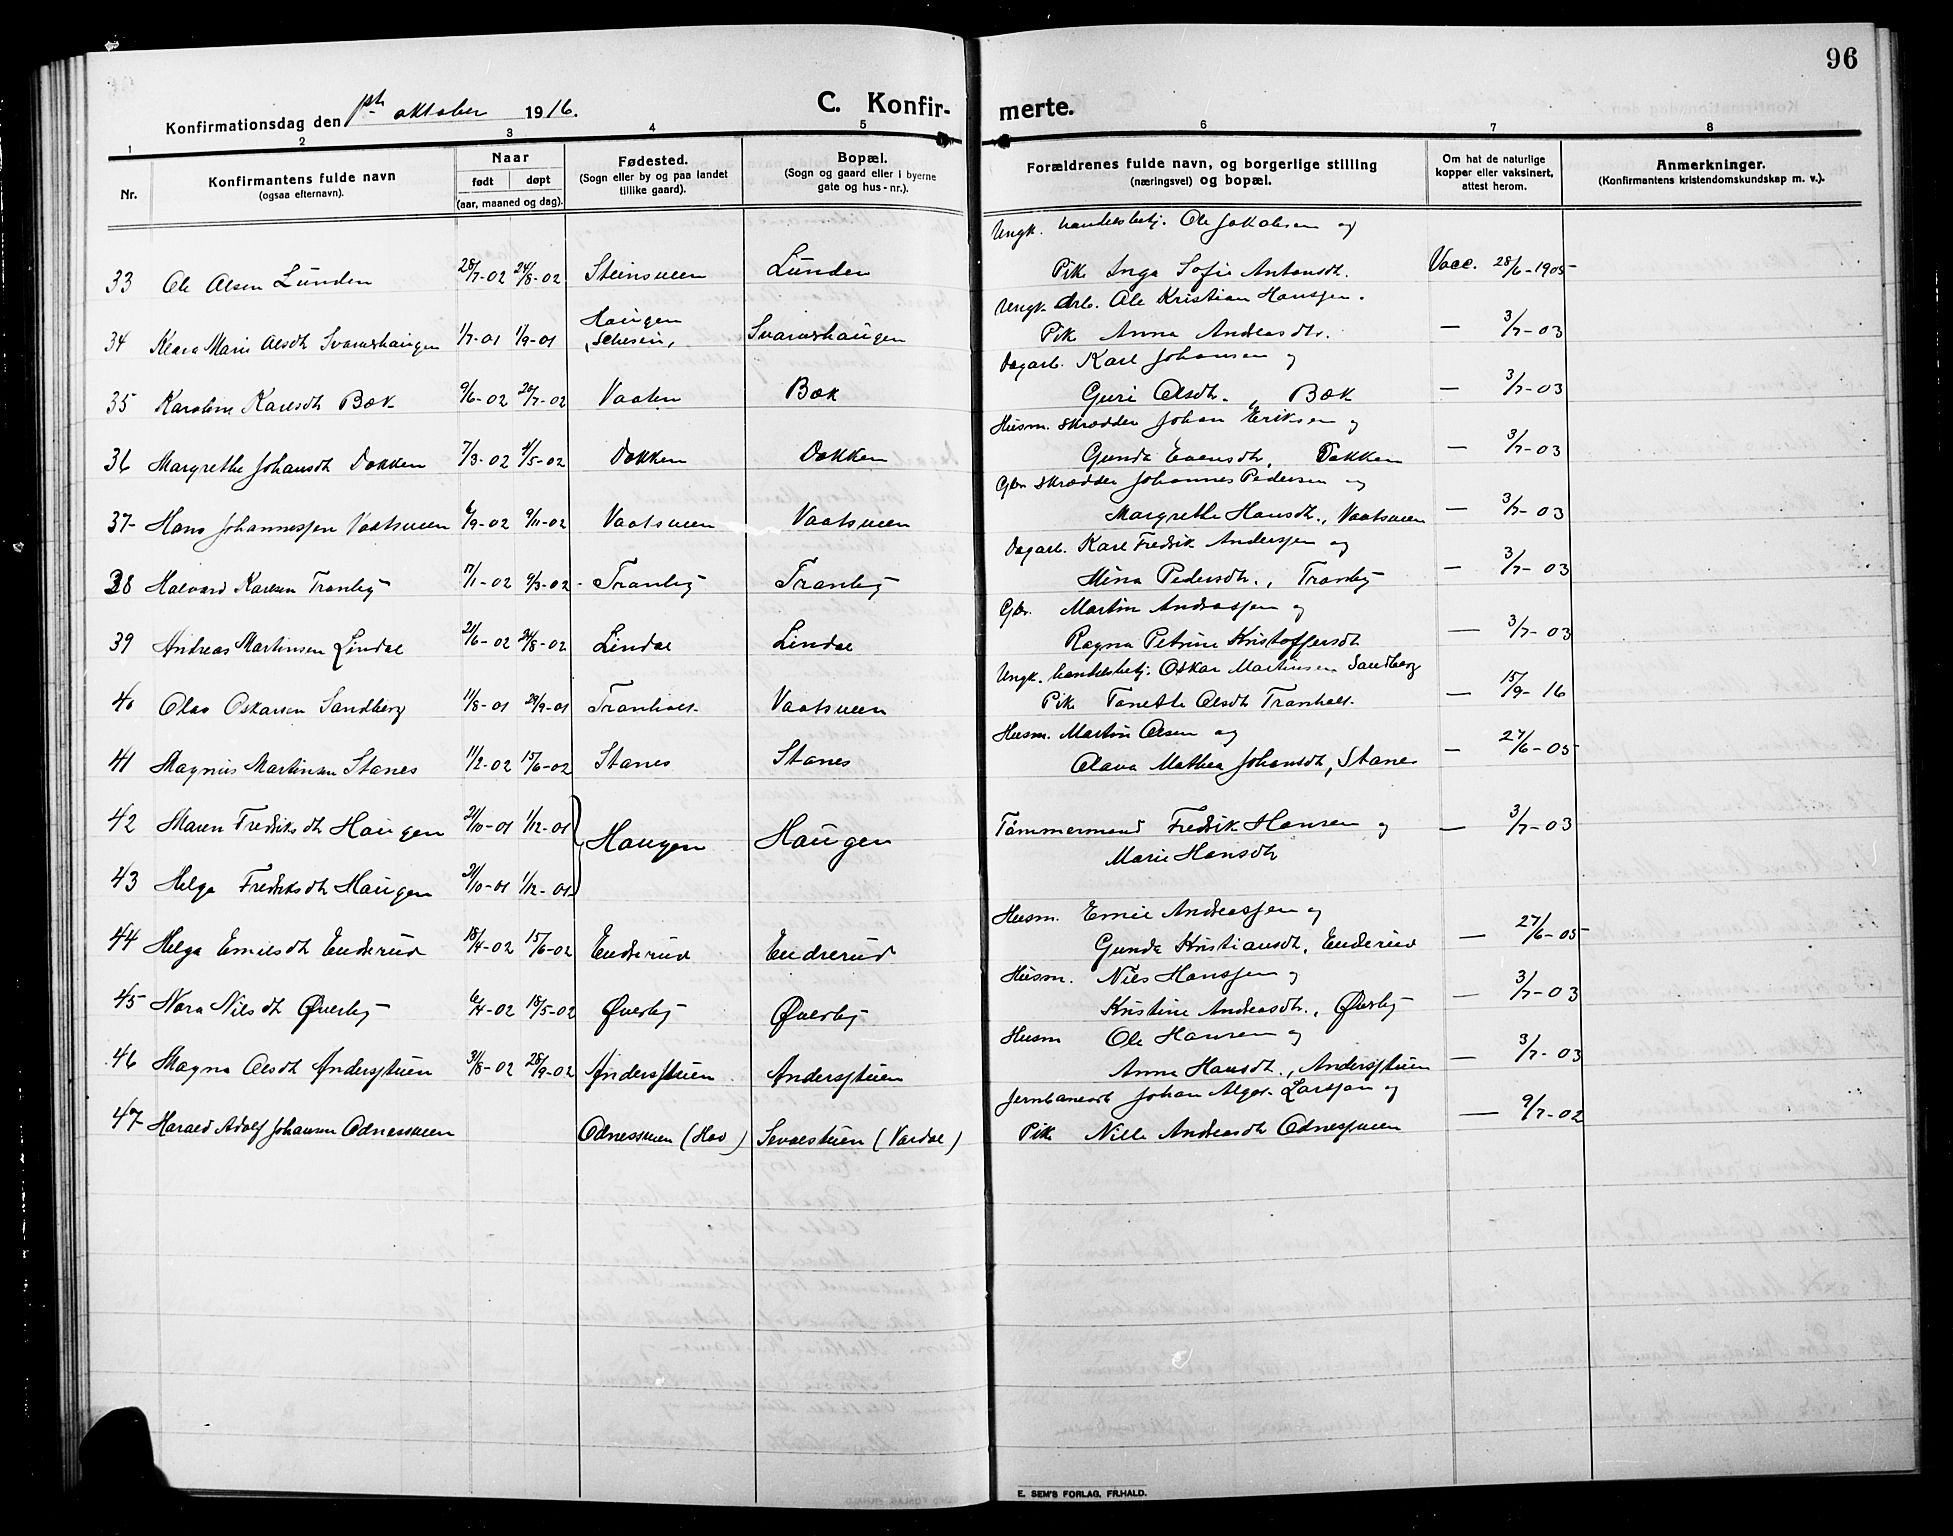 96
Konfirmationsdag den 1ste oktober 1916. C. Konfir- merte.
1 2 3 4 5 6 7 8
Nr. Konfirmantens fulde navn (ogsaa efternavn). Naar født døpt (aar, maaned og dag). Fødested. (Sogn eller by og paa landet tillike gaard). Bopæl. (Sogn og gaard eller i byerne gate og hus-nr.). Forældrenes fulde navn, og borgerlige stilling (næringsvei) og bopæl. Om hat de naturlige kopper eller vaksinert, attest herom. Anmerkninger. (Konfirmantens kristendomskundskap m. v.).
Ungk. handelsbetj. Ole Jakobsen og
33 Ole Olsen Lunden 28/7-02 24/8-02 Steinsveen Lunden Pike Inga Sofie Antonsdt. Vacc. 28/6-1905
Ungk. arb. Ole Kristian Hanssen.
34 Klara Marie Olsdt Svarverhaugen 1/7-01 1/9-01 Haugen Svarverhaugen Pik Anna Andreasdtr. — 3/7-03
Dagarb. Karl Johansen og
35 Karoline Karlsdt Bæk 9/6-02 20/7-02 Vaaten Bæk Guri Olsdt., Bæk — 3/7-03
Husm. skrædder Johan Eriksen og
36 Margrethe Johansdt Dokken 7/3-02 4/5-02 Dokken Dokken Gunda Evensdt, Dokken — 3/7-03
Gbr skrædder Johannes Pedersen og
37 Hans Johannessen Vaatsveen 6/9-02 9/11-02 Vaatsveen Vaatsveen Margrethe Hansdt., Vaatsveen — 3/7-03
Dagarb. Karl Fredrik Anderssen og
38 Halvard Karlsen Tranby 17/1-02 9/3-02 Tranby Tranby Mina Pedersdt., Tranby — 3/7-03
Gbr. Martin Andreassen og
39 Andreas Martinsen Lindal 21/6-02 24/8-02 Lindal Lindal Ragna Petrine Kristoffersdt — 3/7-03
Ungk. handelsbetj. Oskar Martinsen Sandberg
40 Olav Oskarsen Sandberg 11/8-01 29/9-01 Tranholt Vaatsveen Pike Tanette Olsdt Tranholt — 15/9-16
Husm. Martin Olsen og
41 Magnus Martinsen Stanes 11/2-02 15/6-02 Stanes Stanes Olava Mathea Johansdt, Stanes — 27/6-05
42 Maren Fredriksdt Haugen 21/10-01 1/12-01 Haugen Haugen Tømmermand Fredrik Hansen og — 3/7-03
Marie Hansdt
43 Helga Fredriksdt Haugen 21/10-01 1/12-01
Husm. Emil Andreassen og
44 Helga Emilsdt Enderud 18/4-02 15/6-02 Enderud Endrerud Gunda Kristiansdt, Enderud — 27/6-05
Husm. Nils Hanssen og
45 Nora Nilsdt Øverby 6/4-02 18/5-02 Øverby Øverby Kristine Andreasdt., Øverby — 3/7-03
Husm Ole Hansen og
46 Magna Olsdt Andersstuen 31/8-02 28/9-02 Andersstuen Andersstuen Anna Hansdt., Andersstuen — 3/7-03
Jernbanearb Johan Alger Larssen og
47 Harald Adolf Johansen Odnessveen Odnessveen (Hov) Sevalstuen (Vardal) Pike Nille Andreasdt Odnesveen — 9/7-02
E. SEM'S FORLAG, FR.HALD.